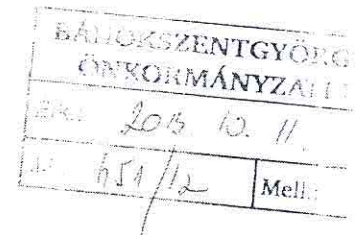 BÁNOKSZENTGYÖRG
ÖNKORMÁNYZA
2013. 10. 11.
651/12 Mell.: